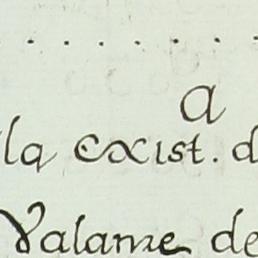 . . . . . . . . .
a
la exist. d
Valame de